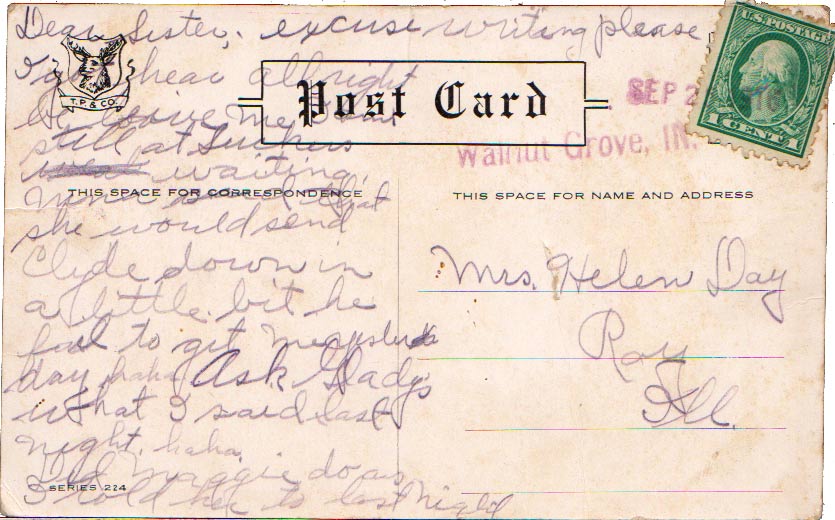 Dear Sister, excuse writing please
hear allright
T.P. & CO.
be
still at Suckers
waiting.
that
she would send
Clyde down in
a little bit he
fail to get
day haha Ask Gladys
what I said last
night. haha.
Did Maggie do as
I told her to last night
Post Card
THIS SPACE FOR CORRESPONDENCE
SERIES 224
U.S. POSTAGE
1 CENT 1
SEP 2
Walnut Grove, IN.
THIS SPACE FOR NAME AND ADDRESS
Mrs. Helen Day
Ray
Ill.